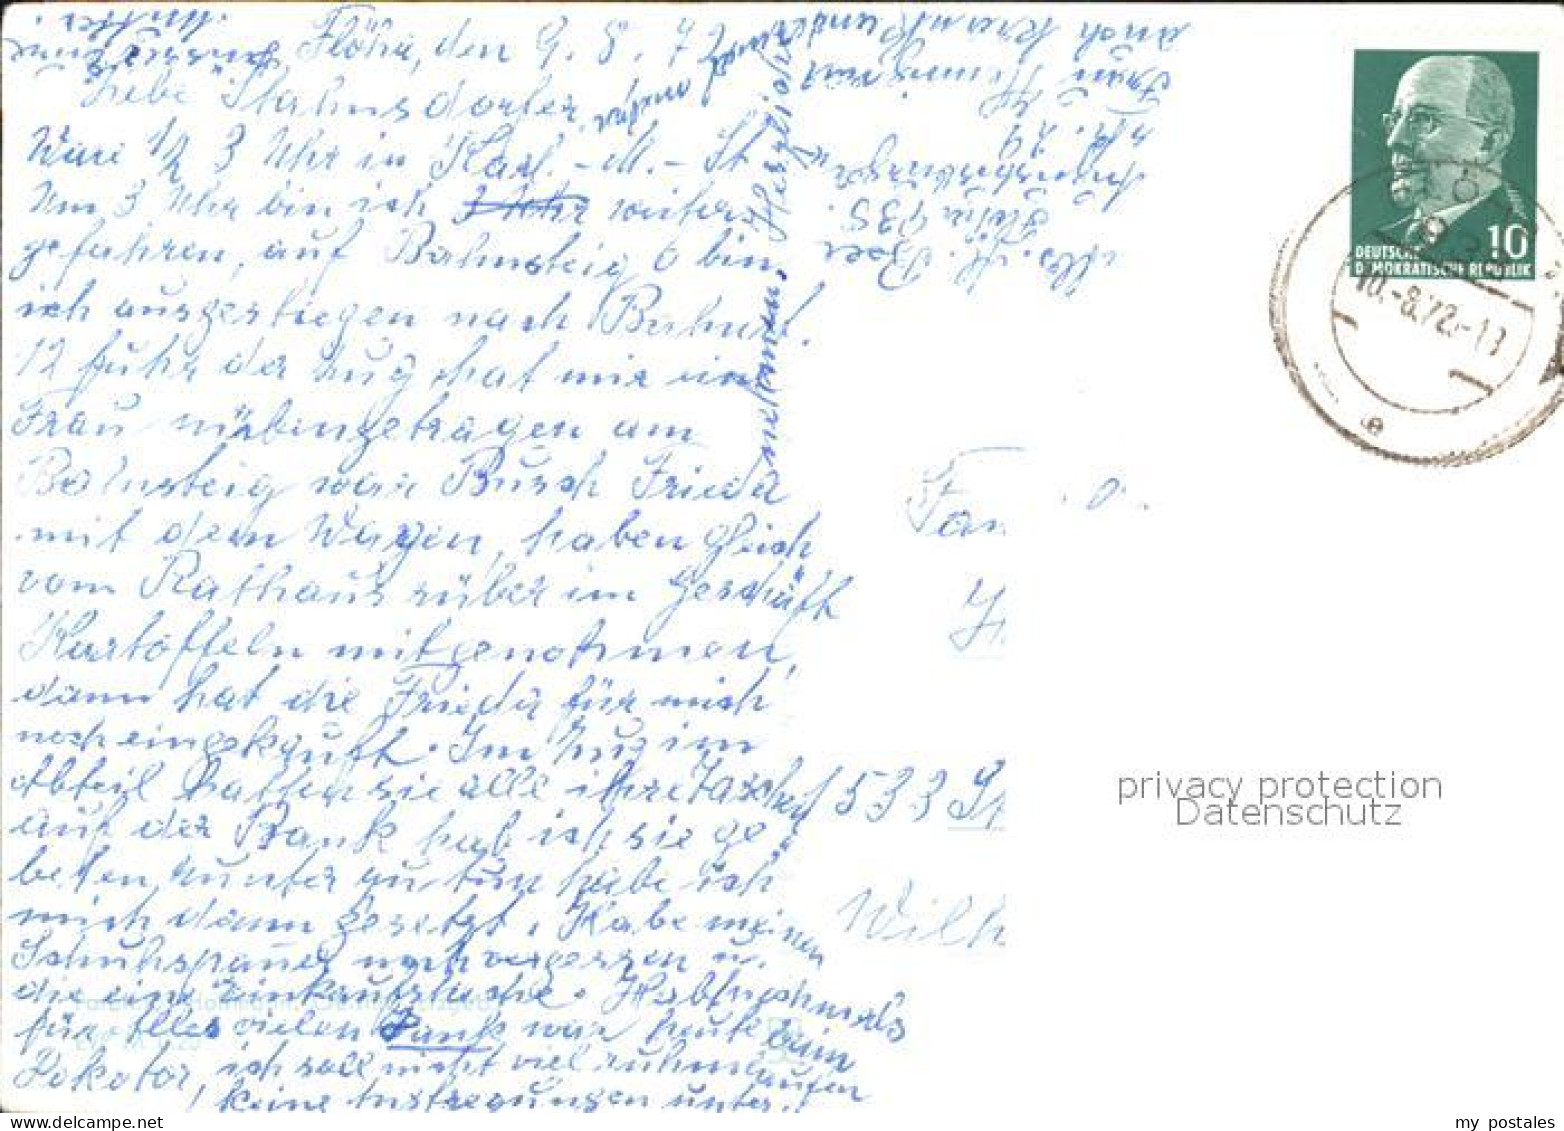 Flöha, den 9. 8. 72
Liebe Stahnsdorfer,
War 1/2 3 Uhr in Karl.-M.-St
Um 3 Uhr bin ich weiter
gefahren, auf Bahnsteig 6 bin
ich ausgestiegen nach Bahnst.
12 fuhr der Zug hat mir eine
Frau rübengetragen am
Bahnsteig war Busch Frieda
mit dem Wagen, haben gleich
vom Rathaus rüber im Geschäft
Kartoffeln mitgenommen,
dann hat die Frieda für mich
noch eingekauft. Im Zug im
Abteil hatten sie alle ihre Taschen
auf der Bank hab ich sie ge
beten, runter zu tun habe ich
mich dann gesetzt. Habe meinen
Schuhspanner noch vergessen u.
die eine Einkaufstasche. Habt nochmals
für alles vielen Dank war heute beim
Dokotor, ich soll nicht viel rumlaufen
keine Anstregungen unter.
Herzlichst
auch
Frau
Nr. 29
Flöha 935.
Abs. M.
DEUTSCHE
DEMOKRATISCHE REPUBLIK
10
10.-8.72.-13
e
Fam
1533 St
Wilh
privacy protection
Datenschutz
delcampe.net
my_postales